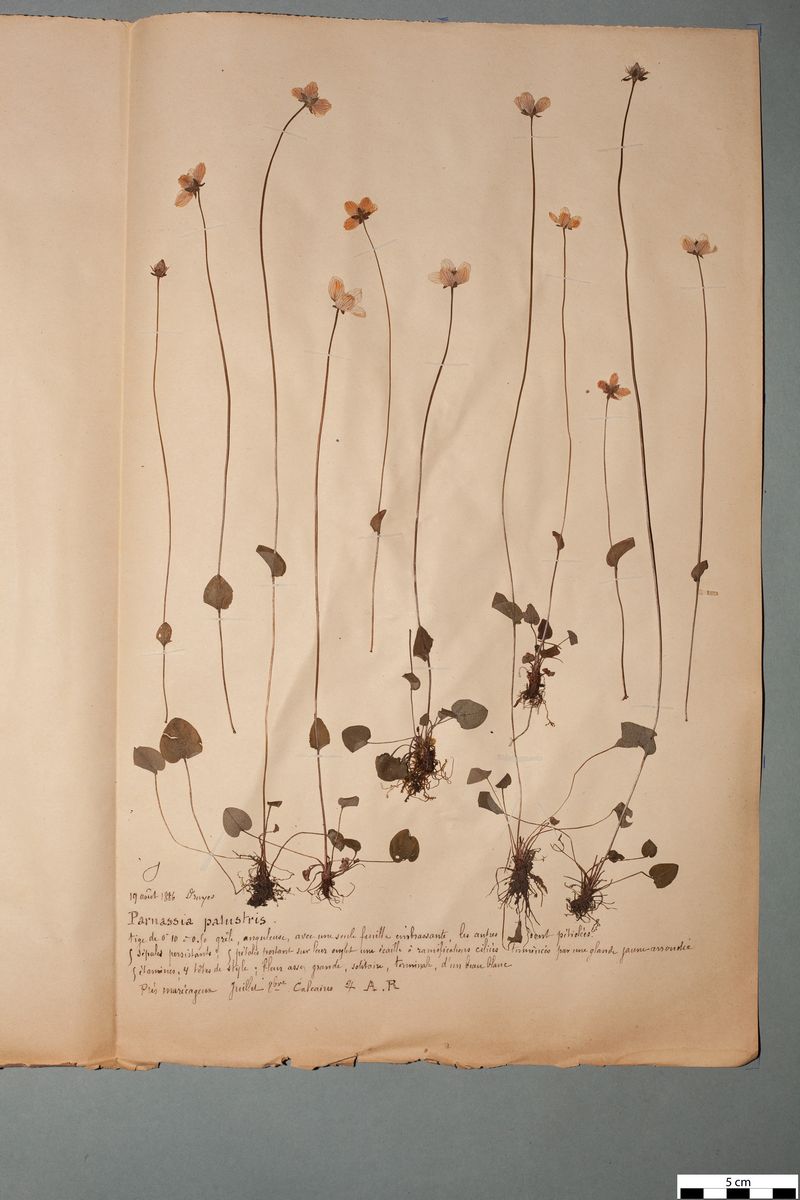 19 août 1886 Druyes
Parnassia palustris.
tige de 0m10 à 0.50 grêle, anguleuse, avec une seule feuille embrassante, les autres sont pétiolées
5 sépales persistants 5 pétales portant sur leur onglet une écaille à ramifications ciliées terminées par une glande jaune arrondie
5 étamines, 4 têtes de style; fleur assez grande, solitaire, terminale, d'un beau blanc
Prés marécageux Juillet 7bre Calcaire A.R
5 cm